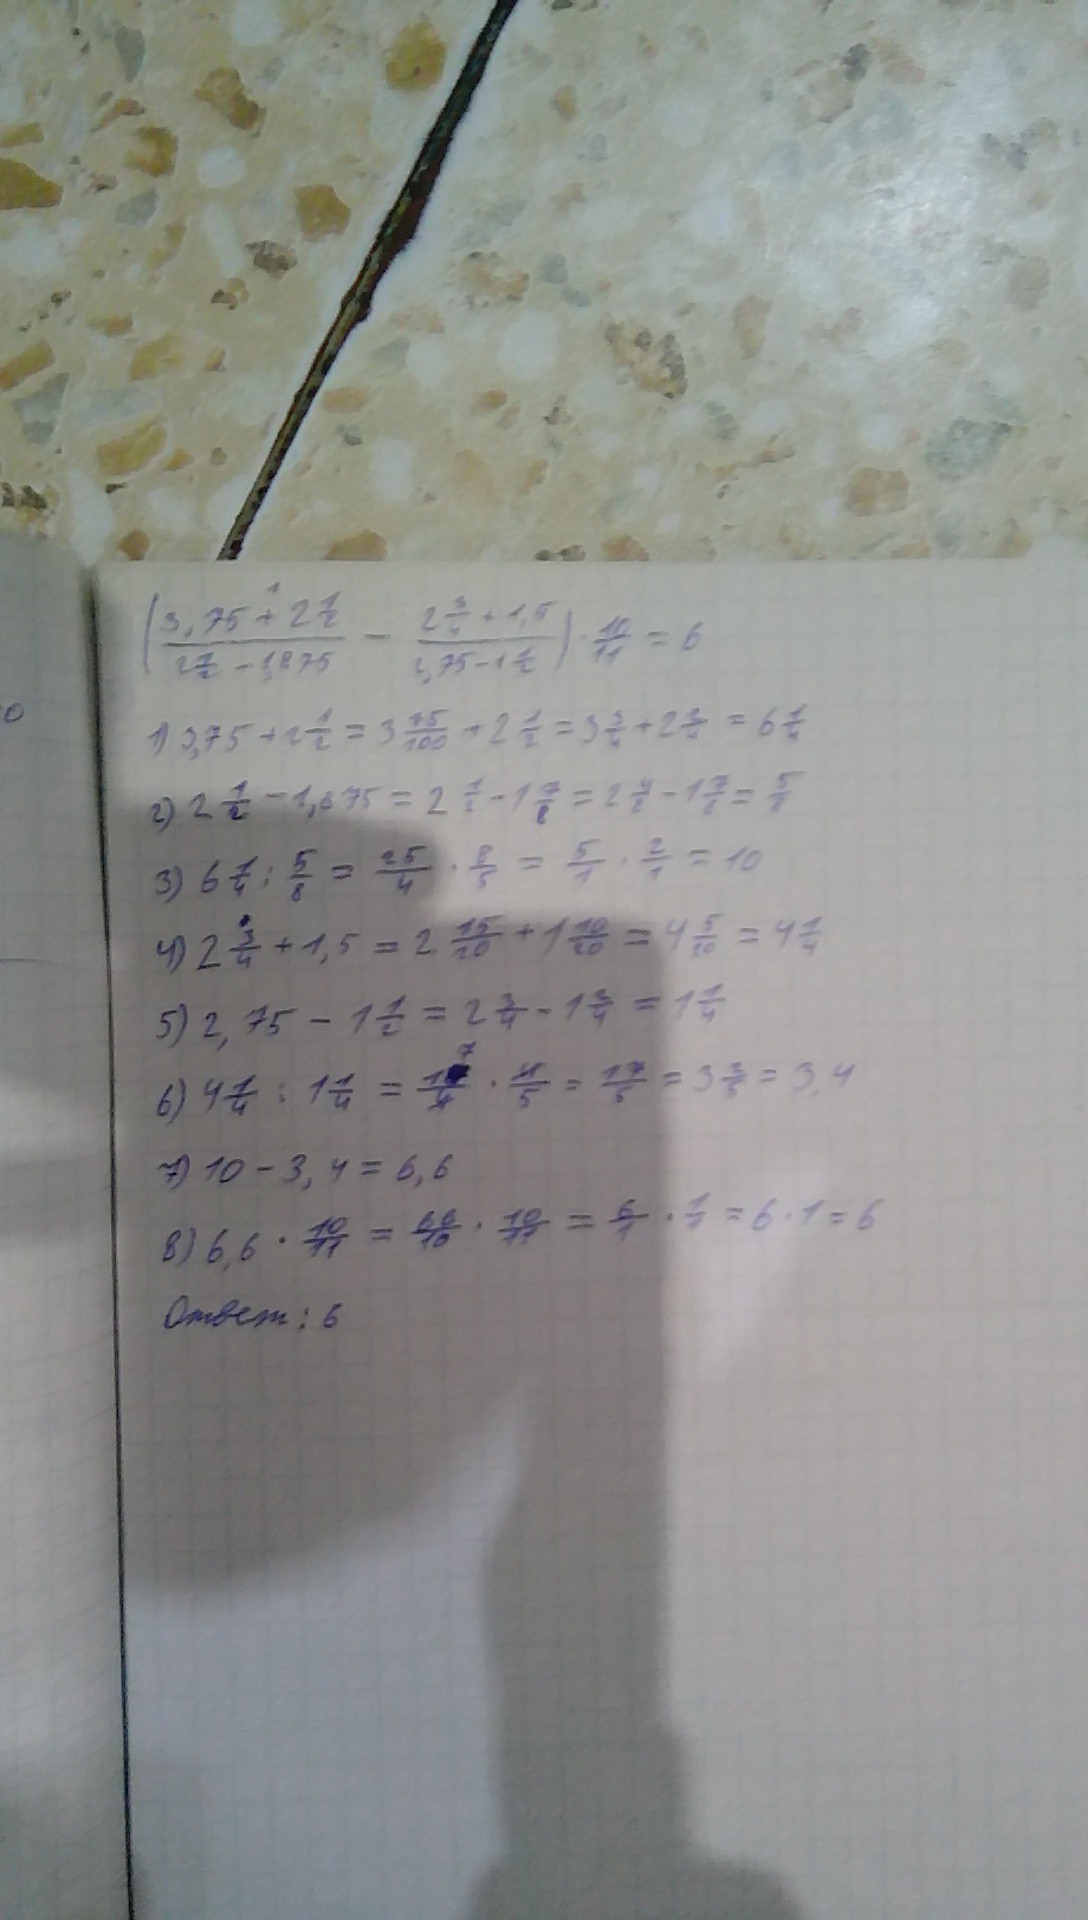 (3,75 + 2 1/2 / 2 1/2 - 1,875 - 2 3/4 + 1,5 / 2,75 - 1 1/2) · 10/11 = 6
1) 3,75 + 2 1/2 = 3 75/100 + 2 1/2 = 3 3/4 + 2 2/4 = 6 1/4
2) 2 1/2 - 1,875 = 2 1/2 - 1 7/8 = 2 4/8 - 1 7/8 = 5/8
3) 6 1/4 : 5/8 = 25/4 · 8/5 = 5/1 · 2/1 = 10
4) 2 3/4 + 1,5 = 2 15/20 + 1 10/20 = 4 5/20 = 4 1/4
5) 2,75 - 1 1/2 = 2 3/4 - 1 2/4 = 1 1/4
6) 4 1/4 : 1 1/4 = 17/4 · 4/5 = 17/5 = 3 2/5 = 3,4
7) 10 - 3,4 = 6,6
8) 6,6 · 10/11 = 66/10 · 10/11 = 6/1 · 1/1 = 6 · 1 = 6
Ответ: 6